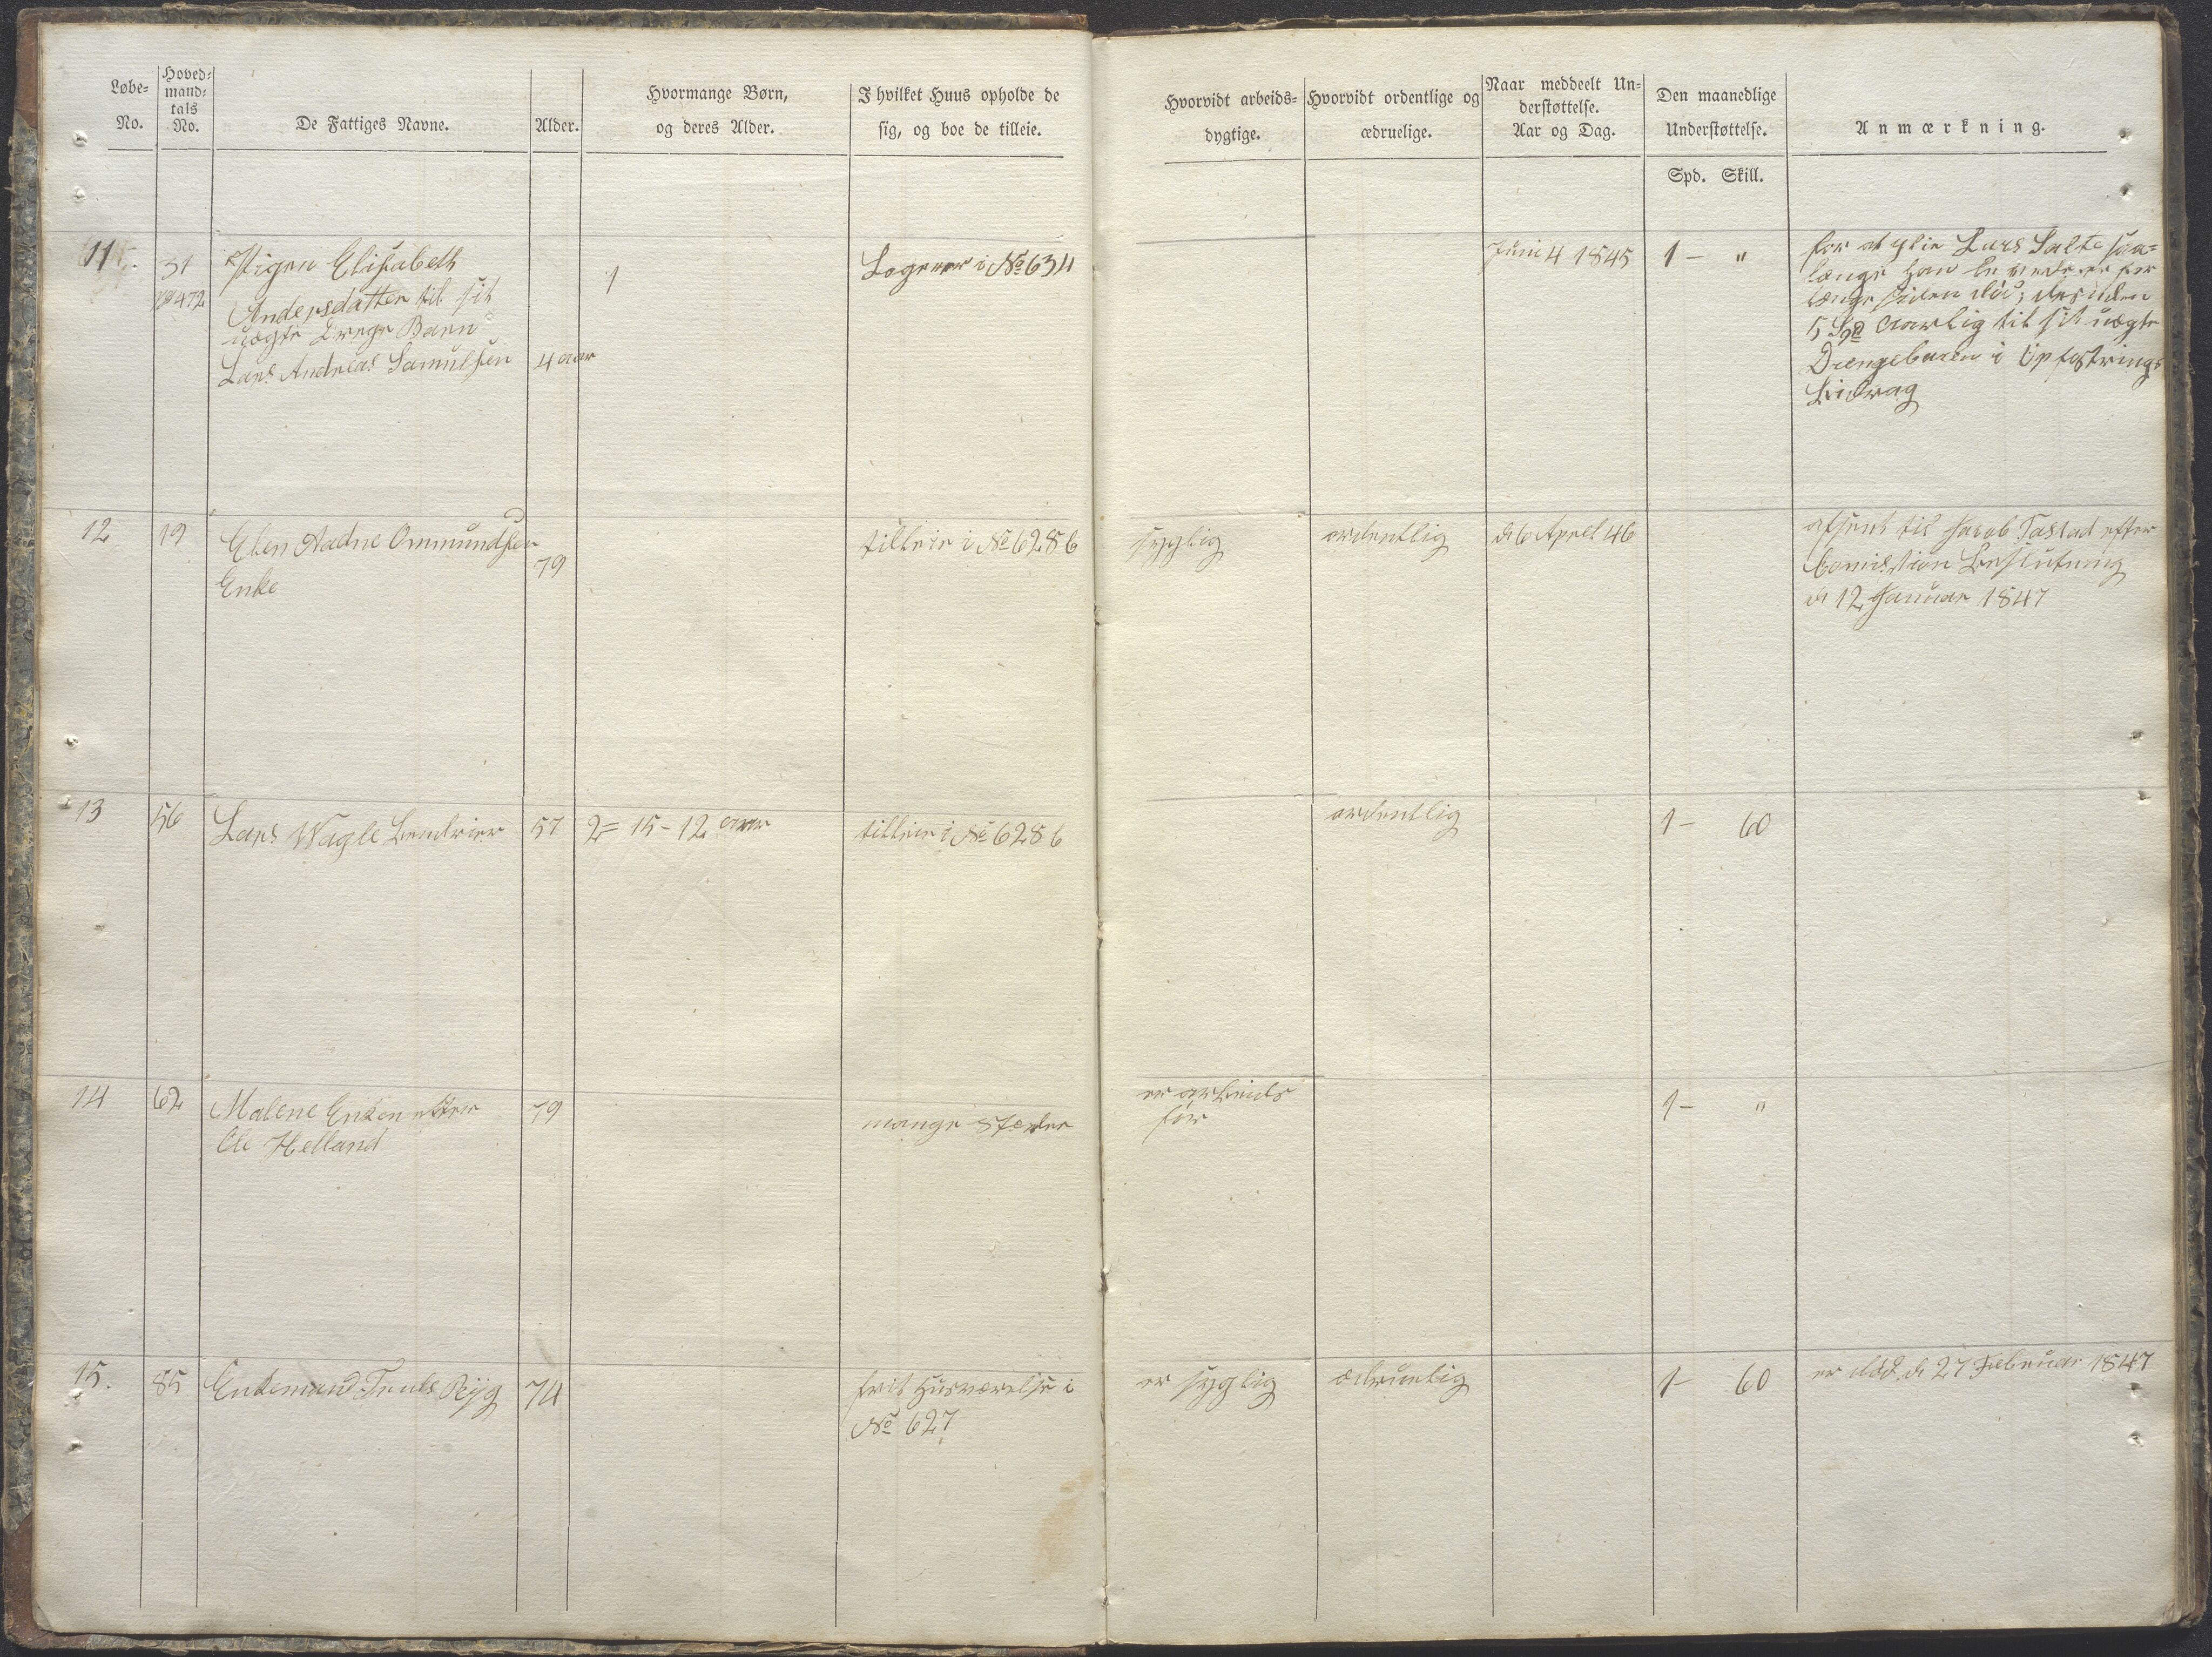 Løbe-
No.
Hoved-
mand-
tals
No.
De Fattiges Navne.
Alder.
Hvormange Børn,
og deres Alder.
I hvilket Huus opholde de
sig, og boe de tilleie.
Hvorvidt arbeids-
dygtige.
Hvorvidt ordentlige og
ædruelige.
Naar meddeelt Un-
derstøttelse.
Aar og Dag.
Den maanedlige
Understøttelse.
Spd. Skill.
Anmærkning.
11
31
472
Pigen Elisabeth
Andersdatter til sit
uægte Barn
Lars Andreas Samulsen
4 aar
1
Logerer i No 634
Juni 4 1845
1 - "
for at pleie Lars Salte saa-
længe han er for
længe siden död; desuden
5 Spd aarlig til sit uægte
Drengebarn i Opfostrings
Bidrag
12
19
Elen Aadne Ommundsen
Enke
79
tilleie i No 6286
syglig
ordentlig
d 6 Aprel 46
afsent til Jacob Tastad efter
Comission Beslutning
d 12 Januar 1847
13
56
Lars Wagle
57
2 = 15 - 12 aar
tilleie i No 6286
ordentlig
1 - 60
14
62
Malene Enken etter
Ole Helland
79
mange Stæder
er arbeids
för
1 - "
15.
85
Enkemand Truls Ryg
74
frit Husværelse i
No 627
er syglig
ædruelig
1 - 60
er död d 27 Februar 1847